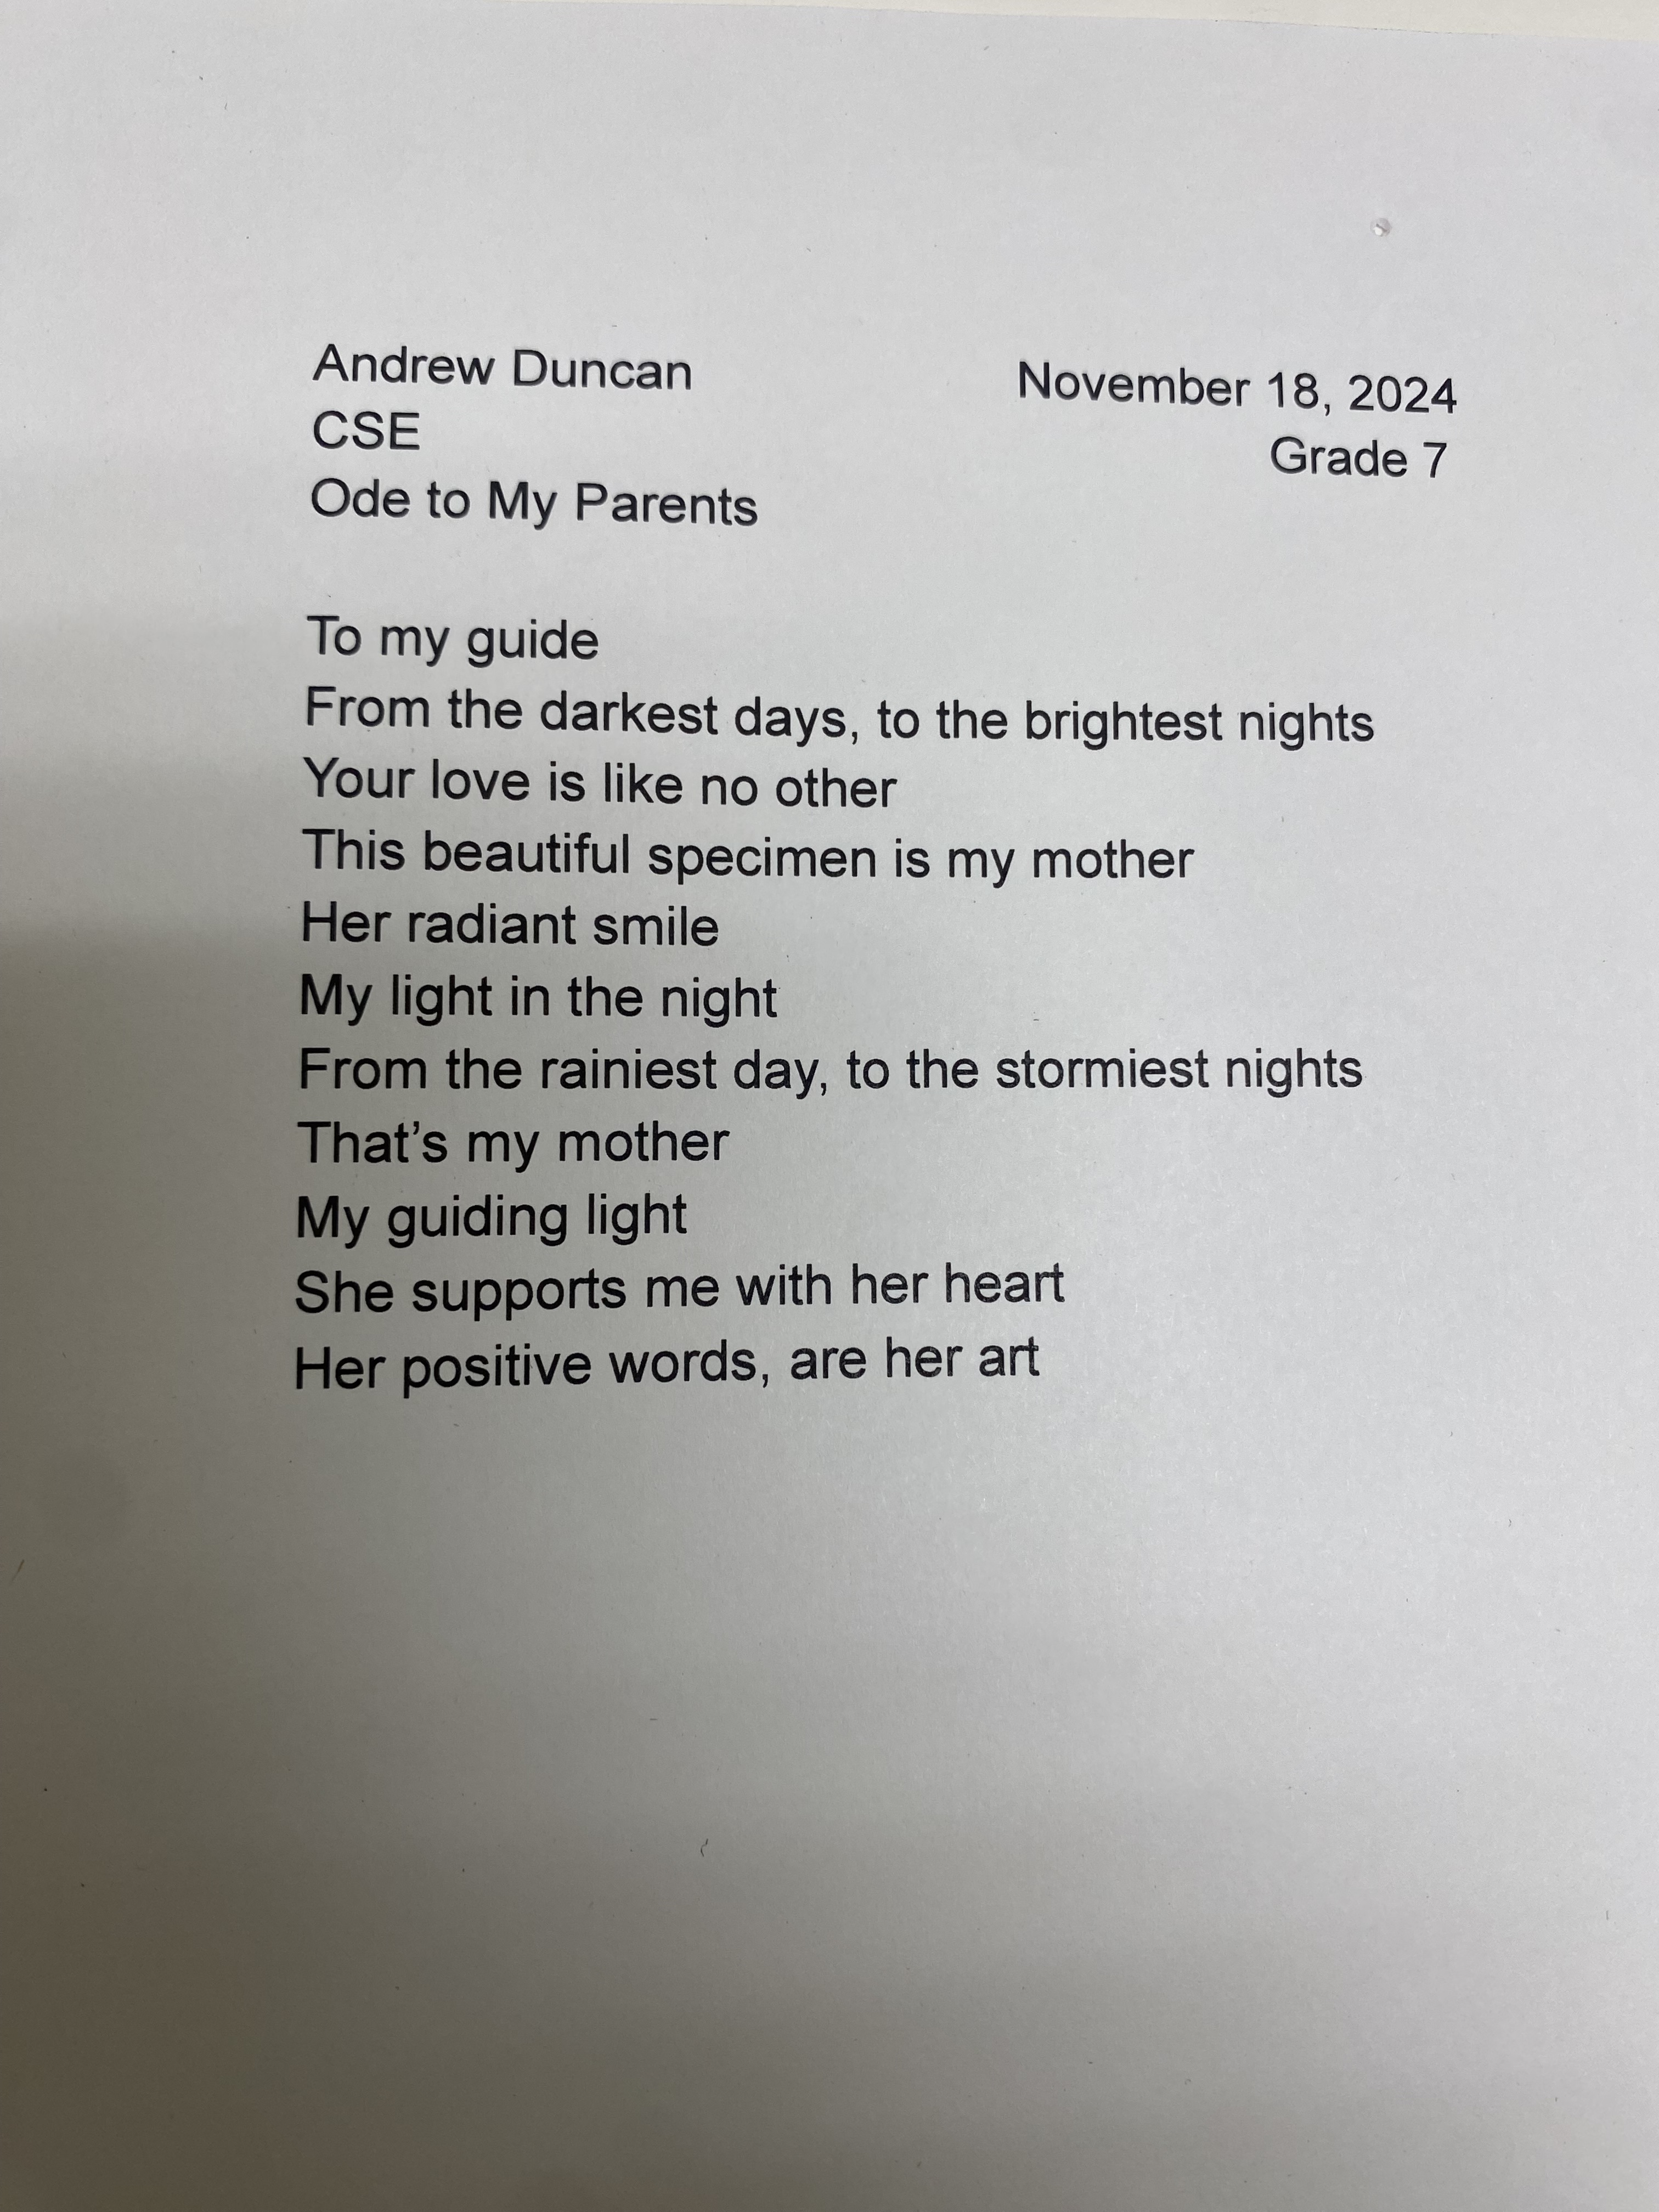 Andrew Duncan November 18, 2024
CSE Grade 7
Ode to My Parents
To my guide
From the darkest days, to the brightest nights
Your love is like no other
This beautiful specimen is my mother
Her radiant smile
My light in the night
From the rainiest day, to the stormiest nights
That’s my mother
My guiding light
She supports me with her heart
Her positive words, are her art